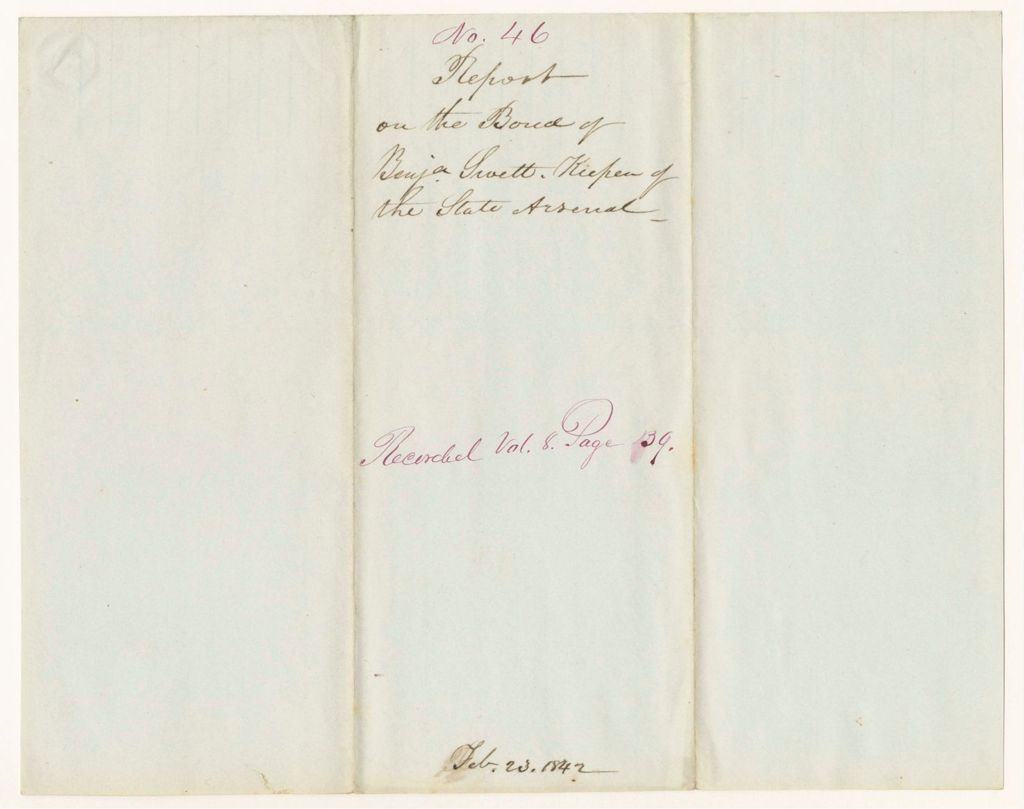 No. 46
Report
on the Bond of
Benja Swett. Keeper of
the State Arsenal
Recorded Vol. 8. Page 139.
Feb. 23. 1842